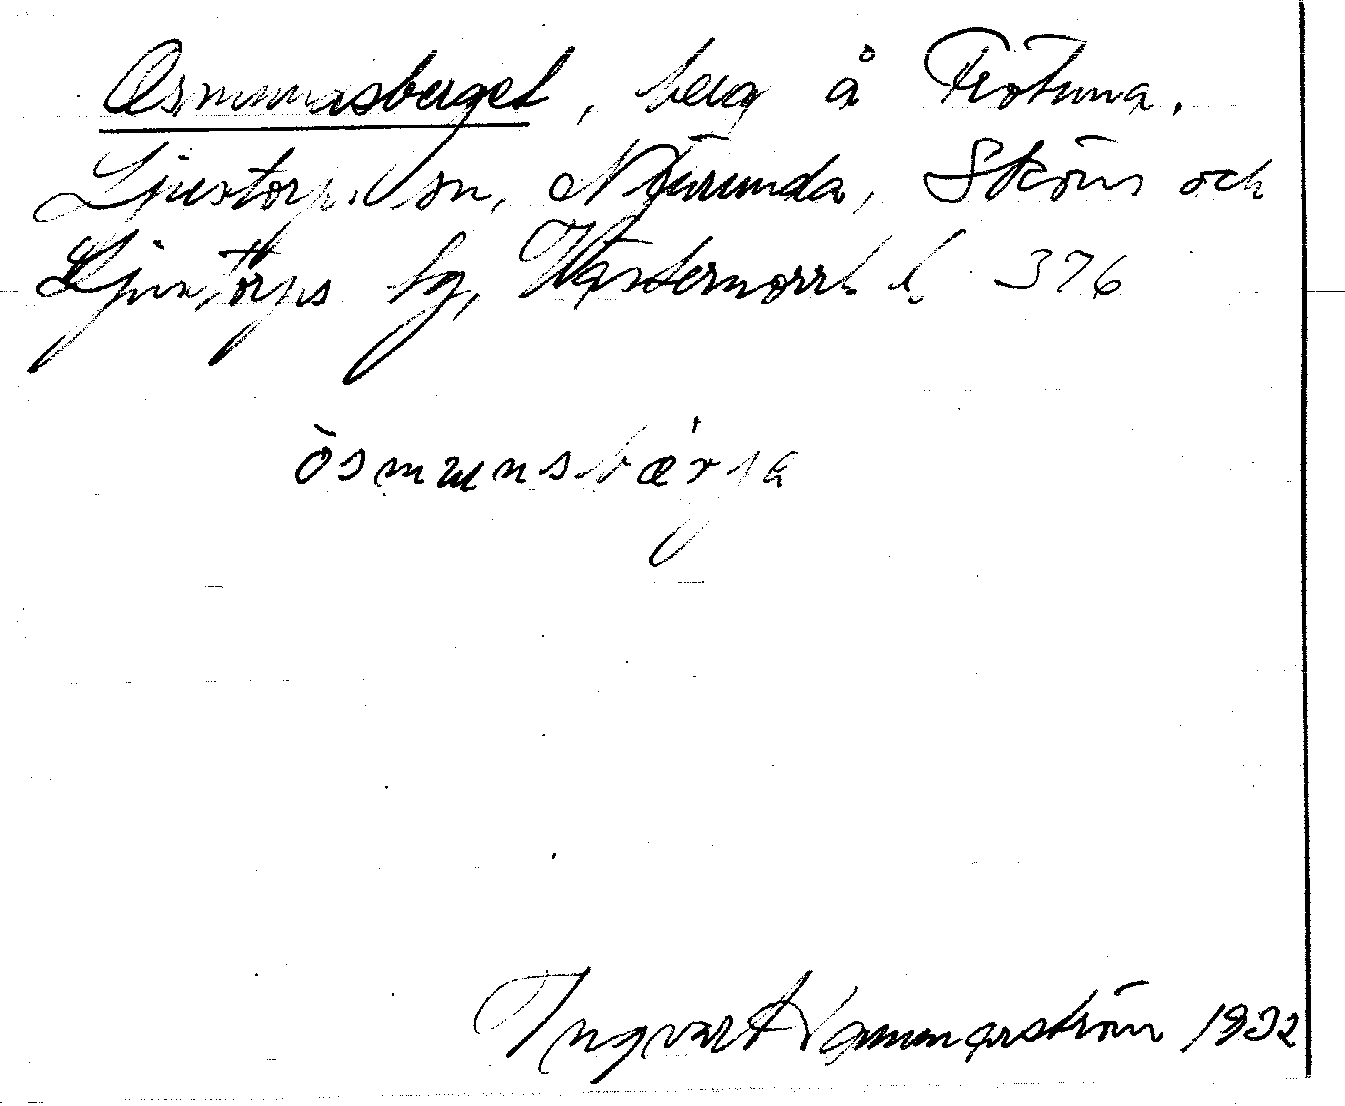 Osmundsberget, berg å Frötuna.
Ljustorps sn, Njurunda, Sköns och
Ljustorps tg, Västernorrl. l. 376
òsmunsbærja
Ingvart Hammarström 1932